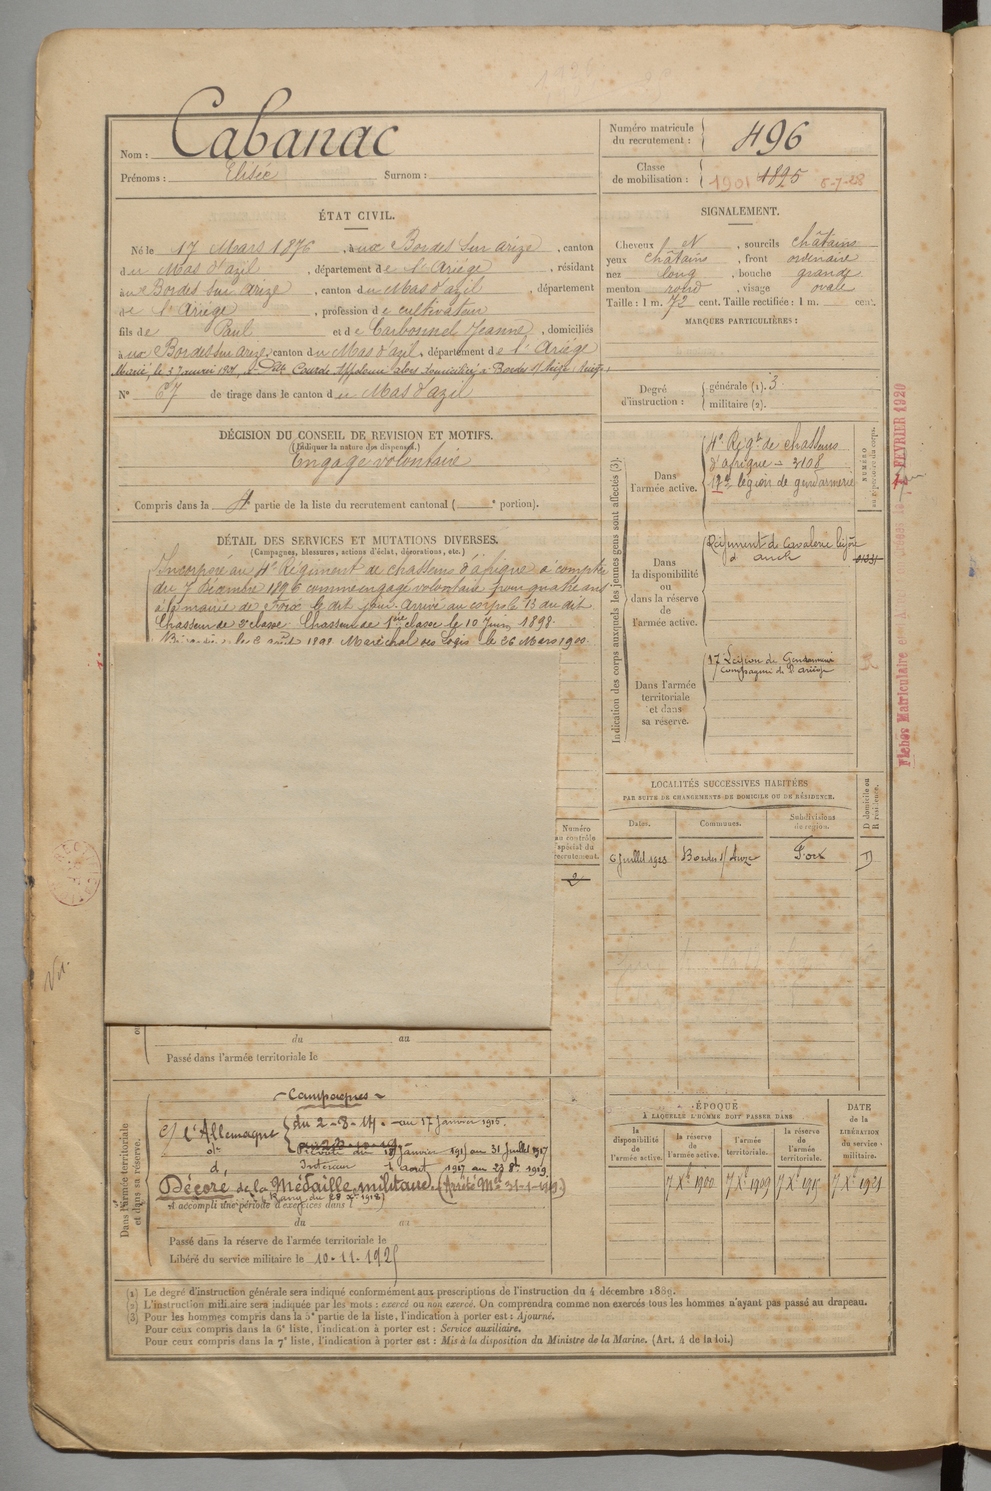 Nom : Cabanac
Prénoms : Elisée Surnom :
Numéro matricule du recrutement : 496
Classe de mobilisation : 1901 1895 6-7-28
ÉTAT CIVIL.
Né le 17 Mars 1876, aux Bordes sur arize, canton
du Mas d'azil, département de l'Ariège, résidant
aux Bordes sur arize, canton du Mas d'azil, département
de l'Ariège, profession de cultivateur
fils de Paul et de Carbonnel Jeanne, domiciliés
à aux Bordes sur arize, canton du Mas d'azil, département de l'Ariège
Marié, le 3 Janvier
N° 67 de tirage dans le canton du Mas d'azil
SIGNALEMENT.
Cheveux N, sourcils châtains
yeux châtains, front ordinaire
nez long, bouche grande
menton rond, visage ovale
Taille : 1 m. 72 cent. Taille rectifiée : 1 m. cent.
MARQUES PARTICULIÈRES :
Degré d'instruction : générale (1). 3
militaire (2).
DÉCISION DU CONSEIL DE REVISION ET MOTIFS.
(Indiquer la nature des dispenses.)
Engagé volontaire
Compris dans la 4e partie de la liste du recrutement cantonal ( e portion).
DÉTAIL DES SERVICES ET MUTATIONS DIVERSES.
(Campagnes, blessures, actions d'éclat, décorations, etc.)
Incorporé au 4e Régiment de chasseurs d'afrique à compter
du 7 Décembre 1896 comme engagé volontaire pour quatre ans
à la mairie de Foix le dit jour. Arrivé au corps le 13 du dit.
Chasseur de 2e classe. Chasseur de 1ère classe le 10 Juin 1898.
1898 Maréchal des Logis le 26 Mars 1900.
Numéro au contrôle spécial du recrutement.
2
Indication des corps auxquels les jeunes gens sont affectés (3).
NUMÉRO au répertoire du corps.
Dans l'armée active.
4e Régt de chasseurs
d'afrique - 3108
17e légion de gendarmerie
Dans la disponibilité ou dans la réserve de l'armée active.
Régiment de Cavalerie légère
d'auch
Dans l'armée territoriale et dans sa réserve.
17 Légion de Gendarmerie
Compagnie de l'ariège
LOCALITÉS SUCCESSIVES HABITÉES
PAR SUITE DE CHANGEMENTS DE DOMICILE OU DE RÉSIDENCE.
D domicile ou R résidence.
Dates. Communes. Subdivisions de région.
6 juillet 1923 Bordes s/ Arize Foix D
Fiches Matriculaire
FEVRIER 1920
Vu.
du au
Passé dans l'armée territoriale le
Dans l'armée territoriale et dans sa réserve.
Campagnes
c/ l'Allemagne du 2-8-14 au 17 Janvier 1915.
Intérieur 1 Aout 1917 au 23 8bre 1919
Décoré de la Médaille militaire
A accompli une période d'exercices dans l
du au
Passé dans la réserve de l'armée territoriale le
Libéré du service militaire le 10.11.1925
ÉPOQUE
À LAQUELLE L'HOMME DOIT PASSER DANS
DATE de la LIBÉRATION du service militaire.
la disponibilité de l'armée active. la réserve de l'armée active. l'armée territoriale. la réserve de l'armée territoriale.
7 Xe 1900 7 Xe 1909 7 Xe 1915 7 Xe 1921
(1) Le degré d'instruction générale sera indiqué conformément aux prescriptions de l'instruction du 4 décembre 1889.
(2) L'instruction militaire sera indiquée par les mots : exercé ou non exercé. On comprendra comme non exercés tous les hommes n'ayant pas passé au drapeau.
(3) Pour les hommes compris dans la 5e partie de la liste, l'indication à porter est : Ajourné.
Pour ceux compris dans la 6e liste, l'indication à porter est : Service auxiliaire.
Pour ceux compris dans la 7e liste, l'indication à porter est : Mis à la disposition du Ministre de la Marine. (Art. 4 de la loi.)